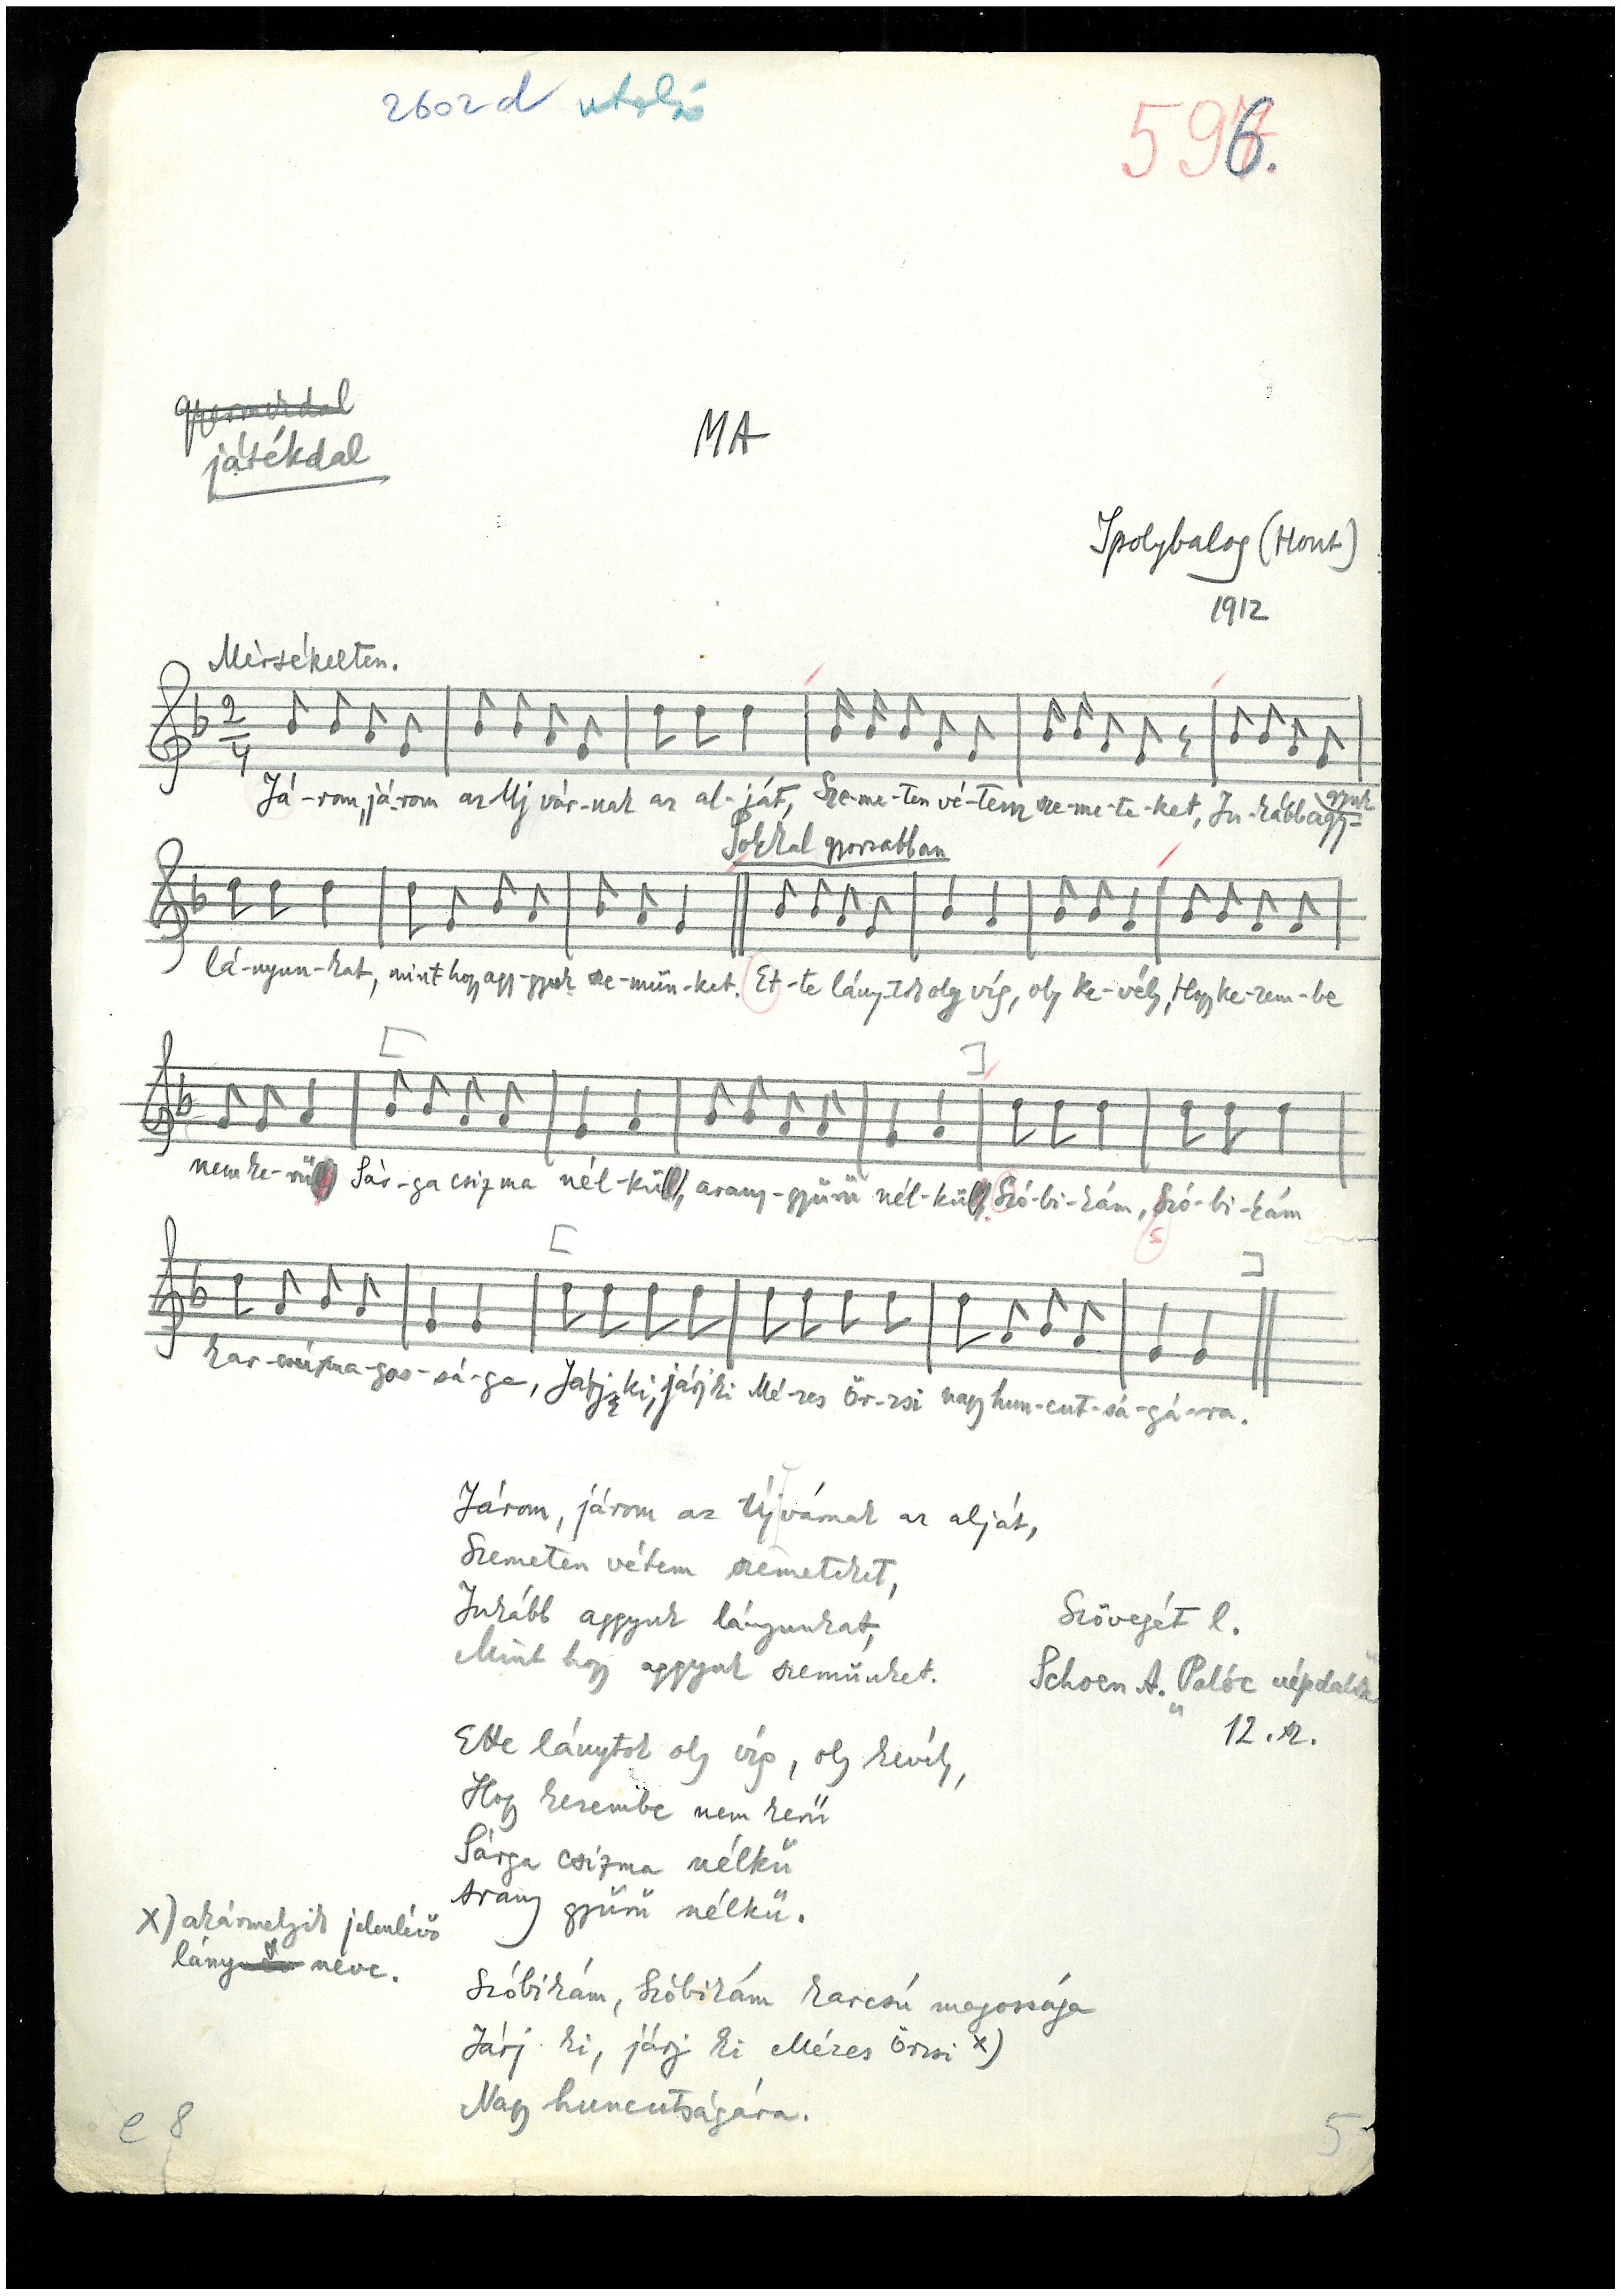 2602 d utolsó
596.
gyermekdal
játékdal
MA
Ipolybalog (Hont)
1912
Mérsékelten.
2/4
Já-rom, já-rom az Uj vár-nak az al-ját, Sze-me-ten vé-tem sze-me-te-ket, In-kább agy-gyuk
Sokkal gyorsabban
lá-nyun-kat, mint hogy agy-gyuk sze-mün-ket. Et-te lány-tok oly víg, oly ke-vély, Hogy ke-zem-be
nem ke-rü Sár-ga csizma nél-kü, arany-gyürü nél-kü, Szó-bi-kám, Szó-bi-kám
kar-csú ma-gos-sá-ga, Járj ki, járj ki Mé-zes Ör-zsi nagy hun-cut-sá-gá-ra.
Járom, járom az Újvárnak az alját,
Szemeten vétem szemeteket,
Inkább aggyuk lányunkat,
Mint hogy aggyuk szemünket.
Szövegét l.
Schoen A. "Palóc népdalok"
12. sz.
Ette lánytok oly víg, oly kevély,
Hogy kezembe nem kerü
Sárga csizma nélkü
Arany gyürü nélkü.
x) akármelyik jelenlévő
lány neve.
Szóbikám, Szóbikám karcsú magossága
Járj ki, járj ki Mézes Örzsi x)
Nagy huncutságára.
e 8
5